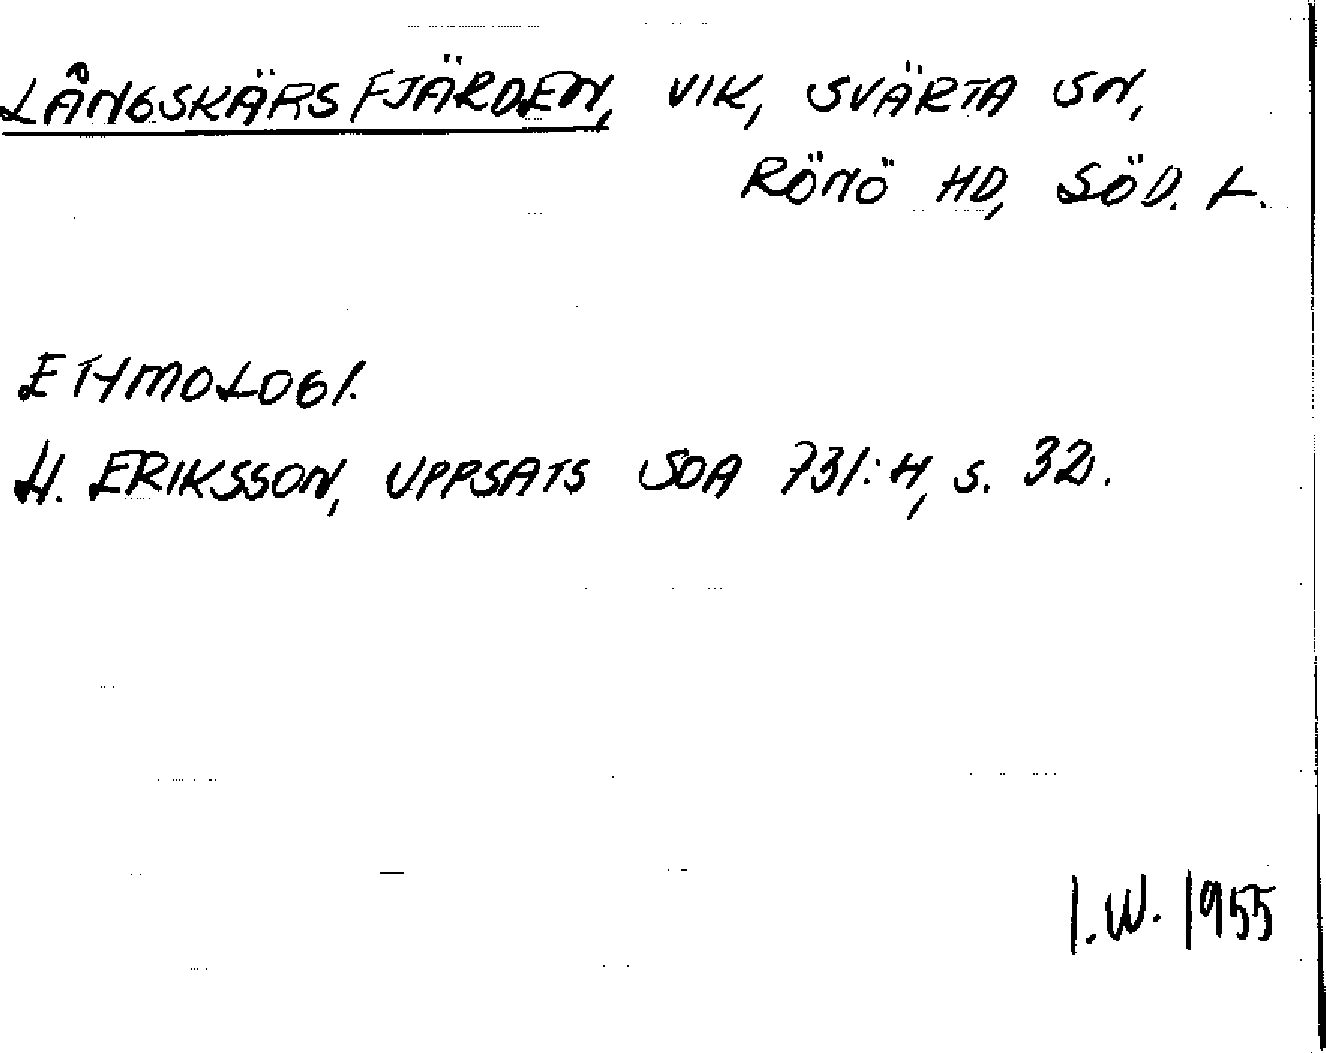 LÅNGSKÄRSFJÄRDEN, VIK, SVÄRTA SN,
RÖNÖ HD, SÖD. L.
ETYMOLOGI.
H. ERIKSSON, UPPSATS SOA 731:H, S. 32.
I.W. 1955